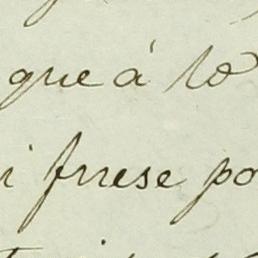 que á lo
i fuese po